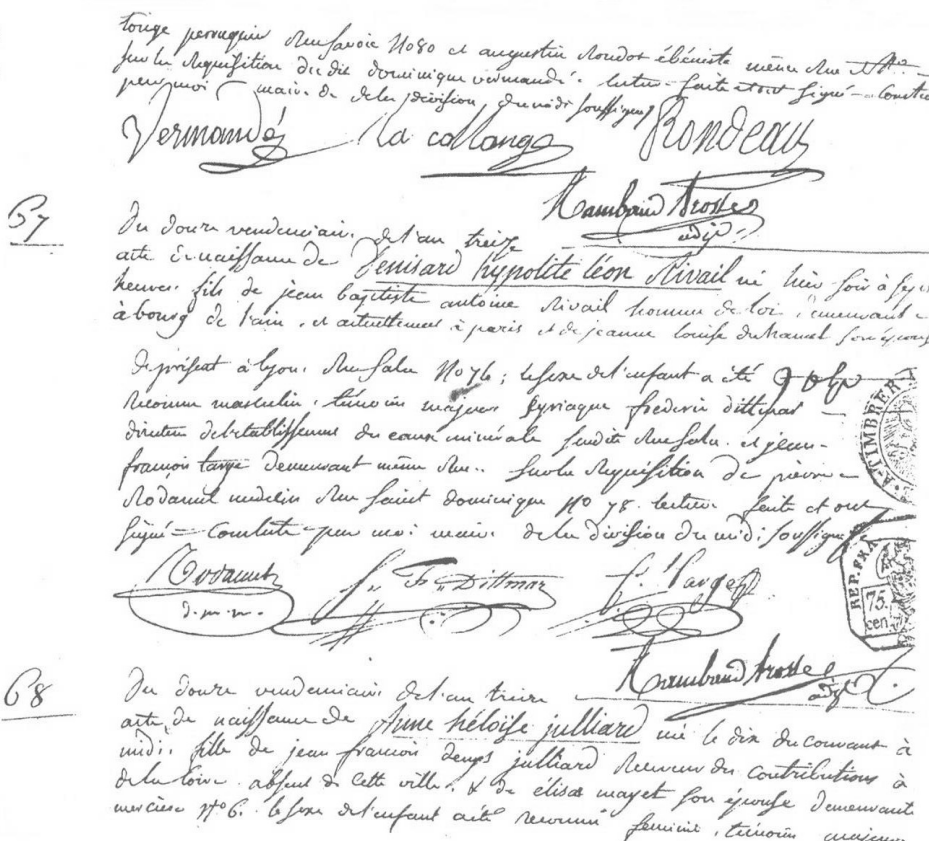 Targe perruquier Rue Savoie No 80 et augustin Rondot ébéniste même Rue No
sur la Requisition du dit dominique vermandé. lecture faite et ont signé – Constaté
par moi maire de la division du midi soussigné
Vermandé la collonge Rondeau
Rambaud Brosse
adjt
67
Du douze vendemiaire de l'an treize
acte de naissance de Denisard hypolite léon Rivail né hier soir à sept
heures. fils de jean baptiste antoine Rivail homme de loi, demeurant
à bourg de l'ain. et actuellement à paris et de jeanne louise duhamel son épouse
de présent à lyon. Rue sala No 76; le sexe de l'enfant a été
Reconnu masculin. témoins majeurs Syriaque frederic dittmar
directeur de l'etablissement des eaux minérales susdite Rue sala. et jean
francois targe demeurant même Rue. sur la Requisition de pierre
Rodamel medecin Rue saint dominique No 78. lecture faite et ont
signé – Constaté par moi maire de la division du midi soussigné
Rodamel Fr. Dittmar Targe
d. m. m.
Rambaud Brosse
adjt
A TIMBRER
REP. FRA
75
cen
68
Du douze vendemiaire de l'an treize
acte de naissance de Anne héloïse julliard née le dix du courant à
midi. fille de jean francois denys julliard Receveur des contributions à
de la loire. absent de cette ville. & de élisa mayet son épouse demeurante
merciere No 6. le sexe de l'enfant a été reconnu feminin. témoins majeurs